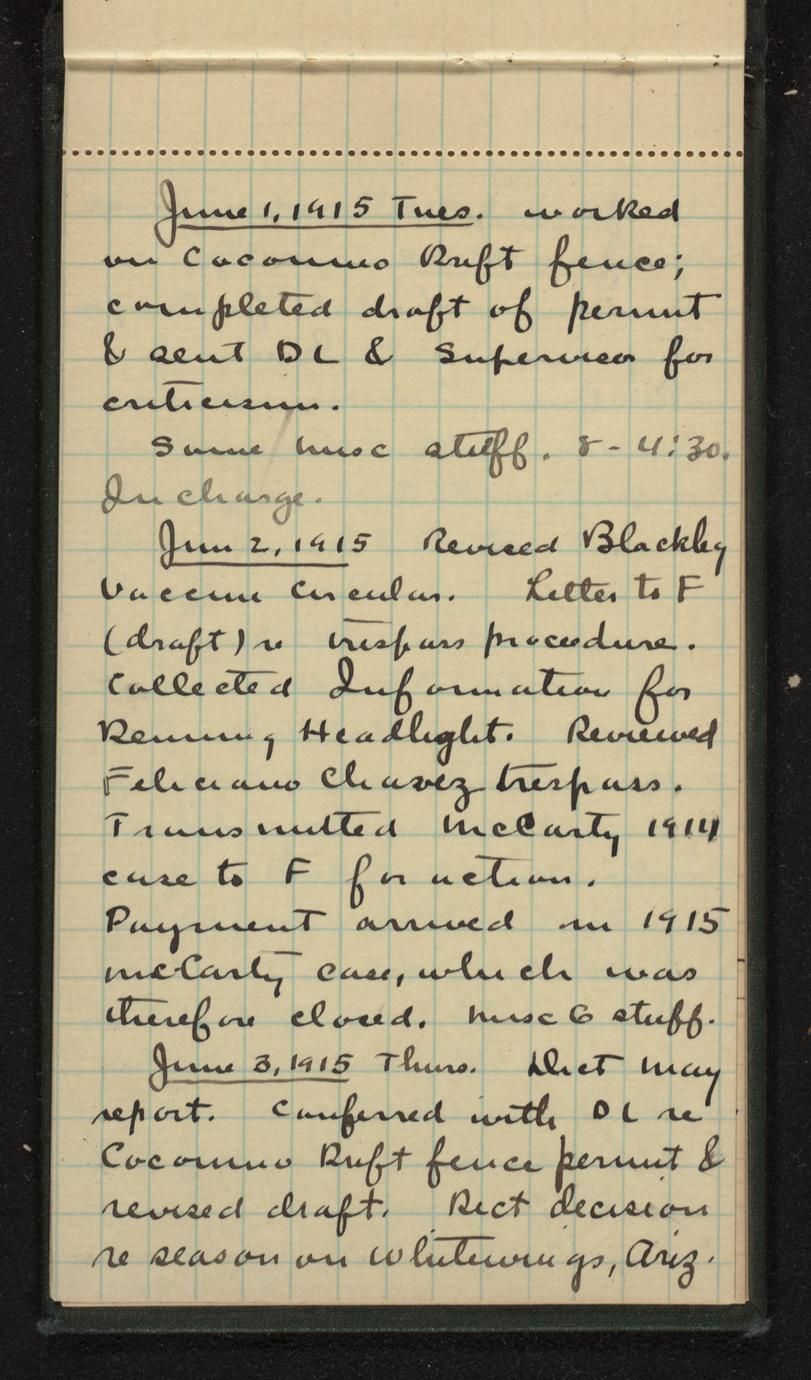 June 1, 1915 Tues. worked
on Coconino Drift fence;
completed draft of permit
& sent DL & Supervisor for
criticism.
Some misc stuff. 8 - 4:30.
In charge.
Jun 2, 1915 Revised Blackleg
Vaccine Circular. Letter to F
(draft) re trespass procedure.
Collected Information for
Deming Headlight. Reviewed
Feliciano Chavez trespass.
Transmitted McCarty 1914
case to F for action.
Payment arrived in 1915
McCarty case, which was
therefore closed. Misc G stuff.
June 3, 1915 Thurs. Dict May
report. Conferred with DL re
Coconino Drift fence permit &
revised draft. Dict decision
re season on Whitewings, Ariz.